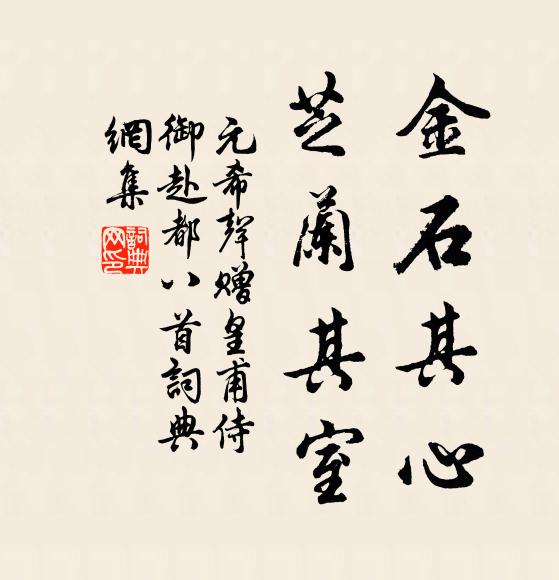 金石其心
芝蘭其室
元希聲贈皇甫侍
御赴都八首詞典
網集
詞典
网印